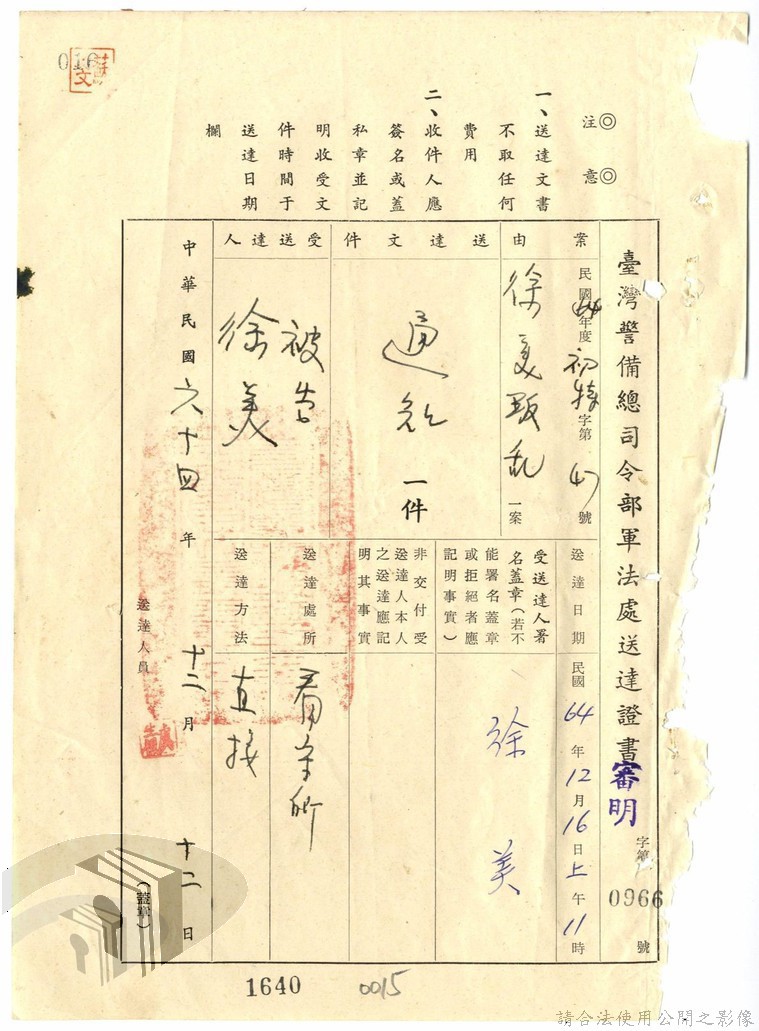 016
◎注意◎
一、送達文書
不取任何
費用
二、收件人應
簽名或蓋
私章並記
明收受文
件時間于
送達日期
欄
臺灣警備總司令部軍法處送達證書
審明字第0966號
案由
民國64年度初特字第47號
徐美叛乱一案
送達文件
通知一件
受送達人
被告
徐美
送達日期
民國64年12月16日上午11時
受送達人署
名蓋章(若不
能署名蓋章
或拒絕者應
記明事實)
徐美
非交付受
送達人本人
之送達應記
明其事實
送達處所
看守所
送達方法
直接
中華民國六十四年十二月十二日
送達人員
(蓋章)
1640
0015
請合法使用公開之影像